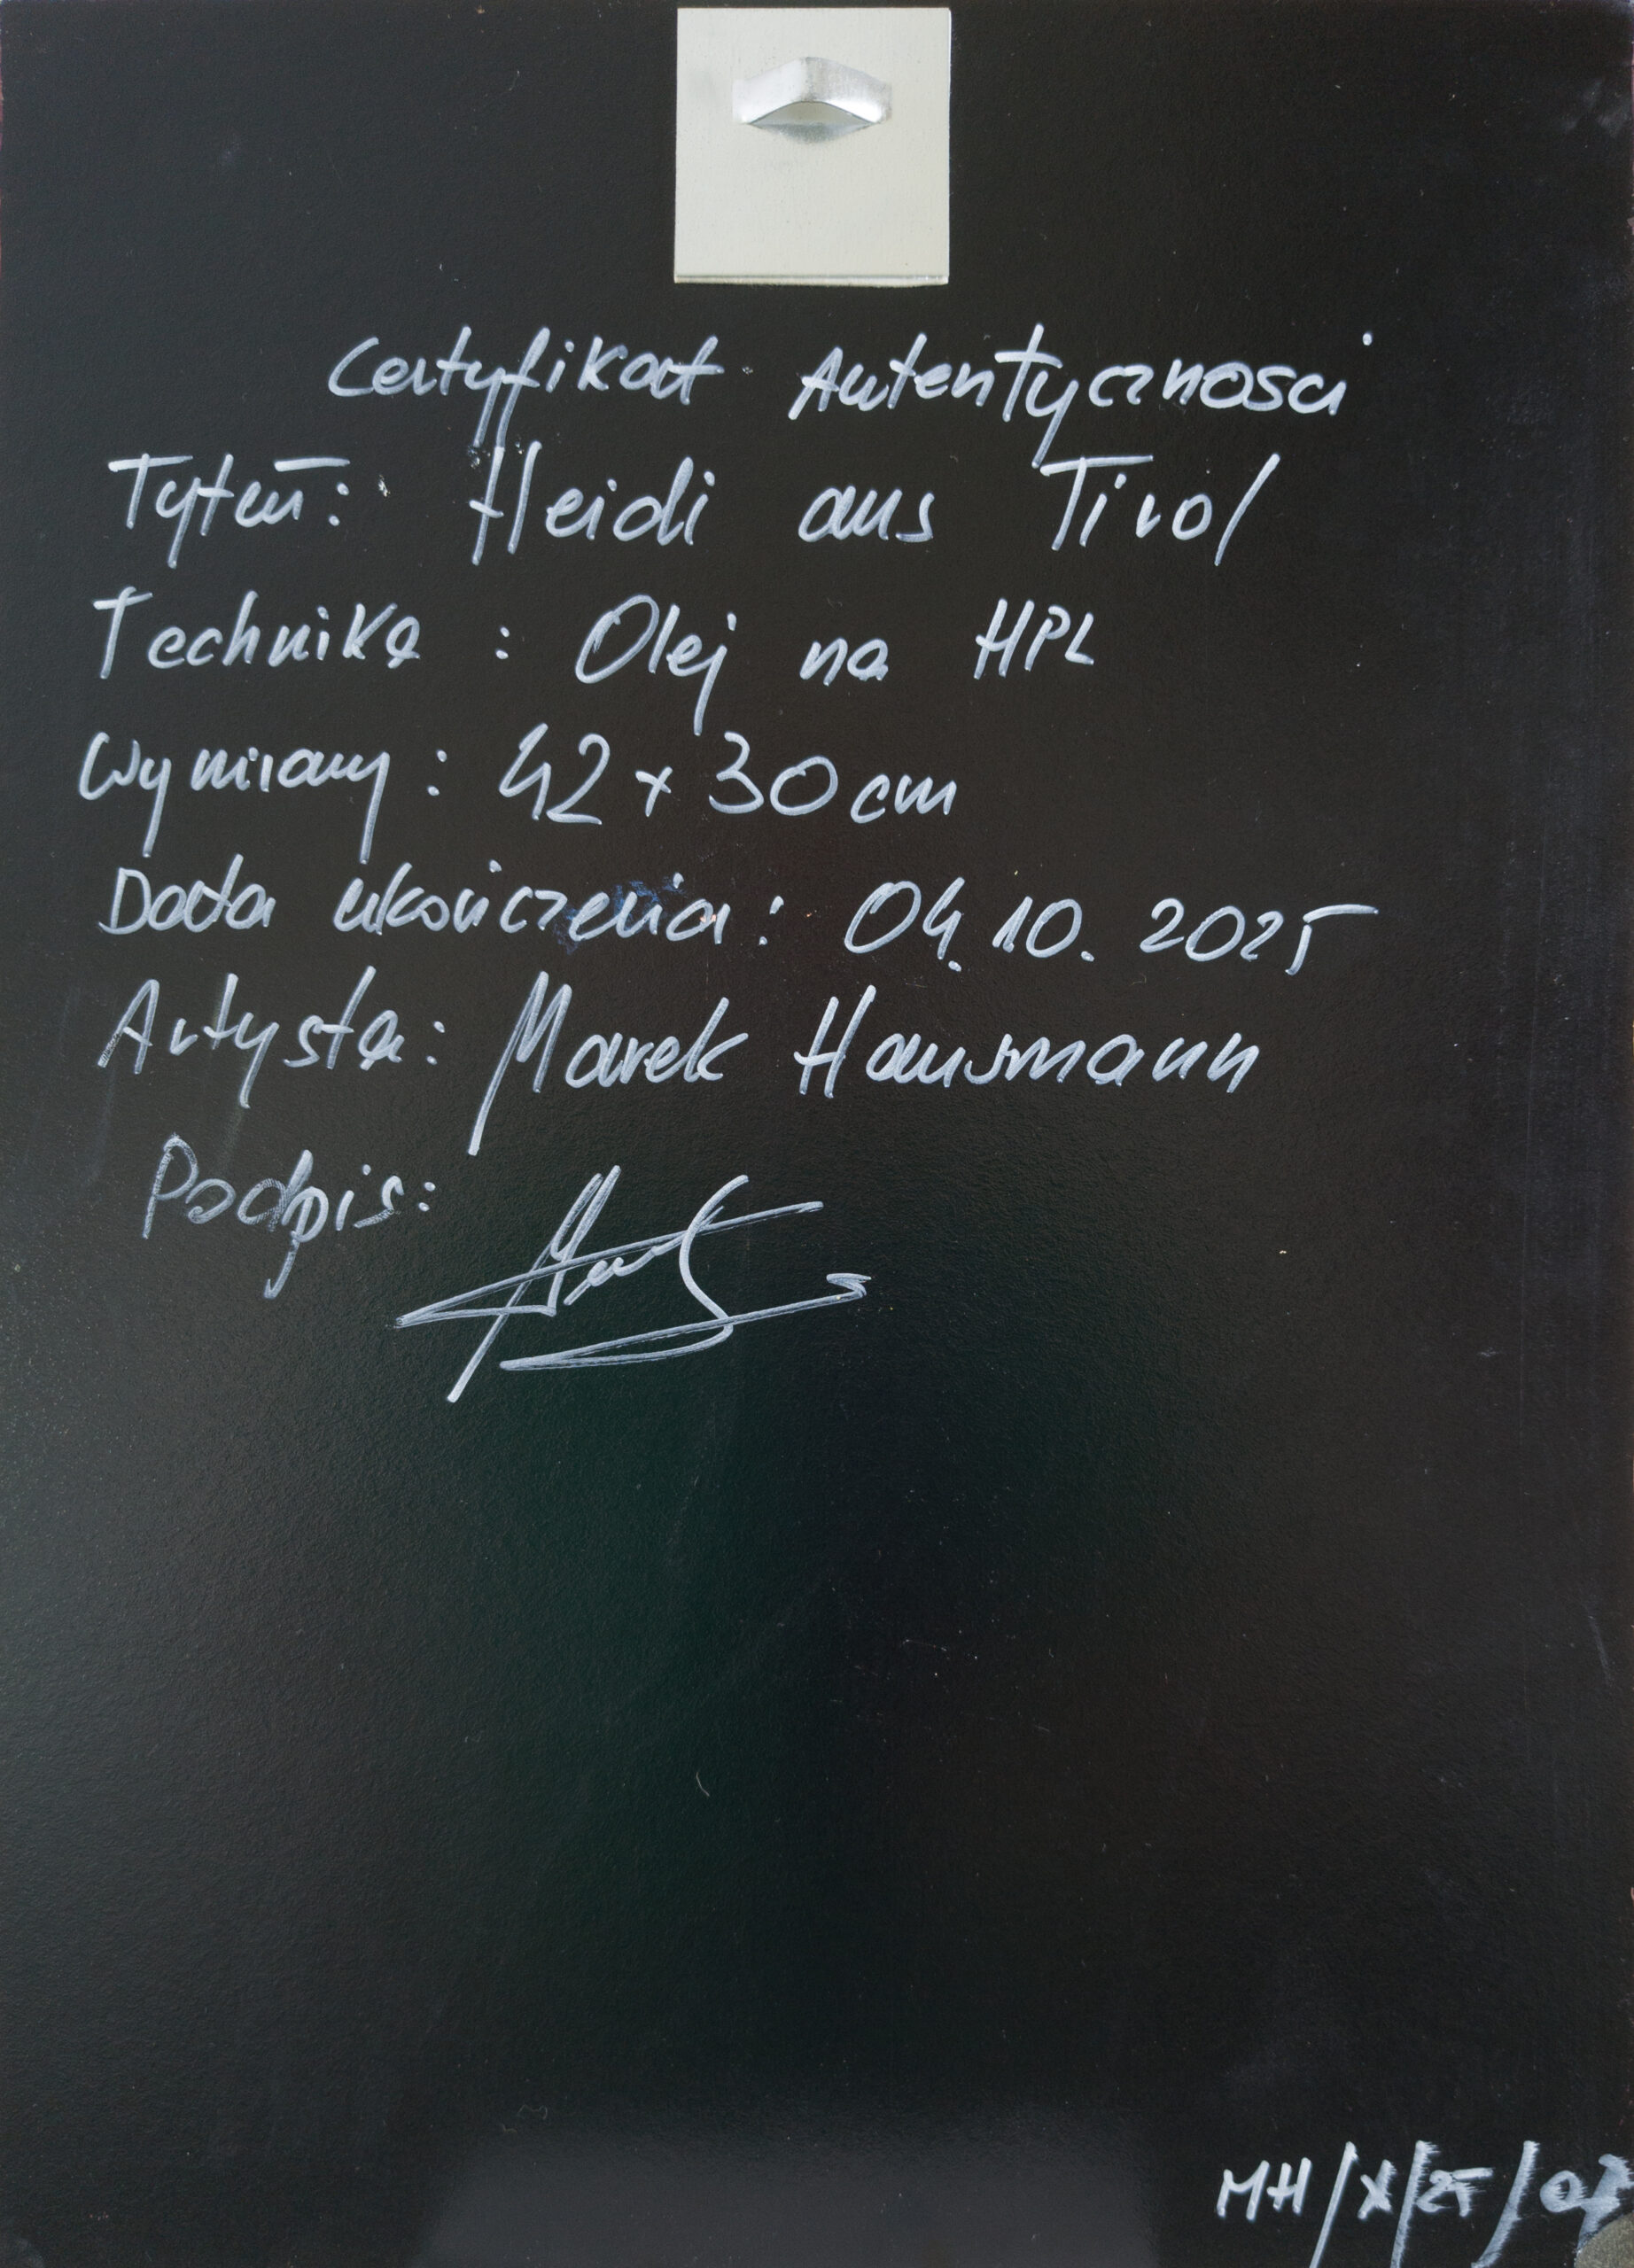 Certyfikat Autentyczności
Tytuł: Heidi aus Tirol
Technika: Olej na HPL
Wymiary: 42 x 30 cm
Data ukończenia: 04.10.2025
Artysta: Marek Hausmann
Podpis:
MH/X/25/07